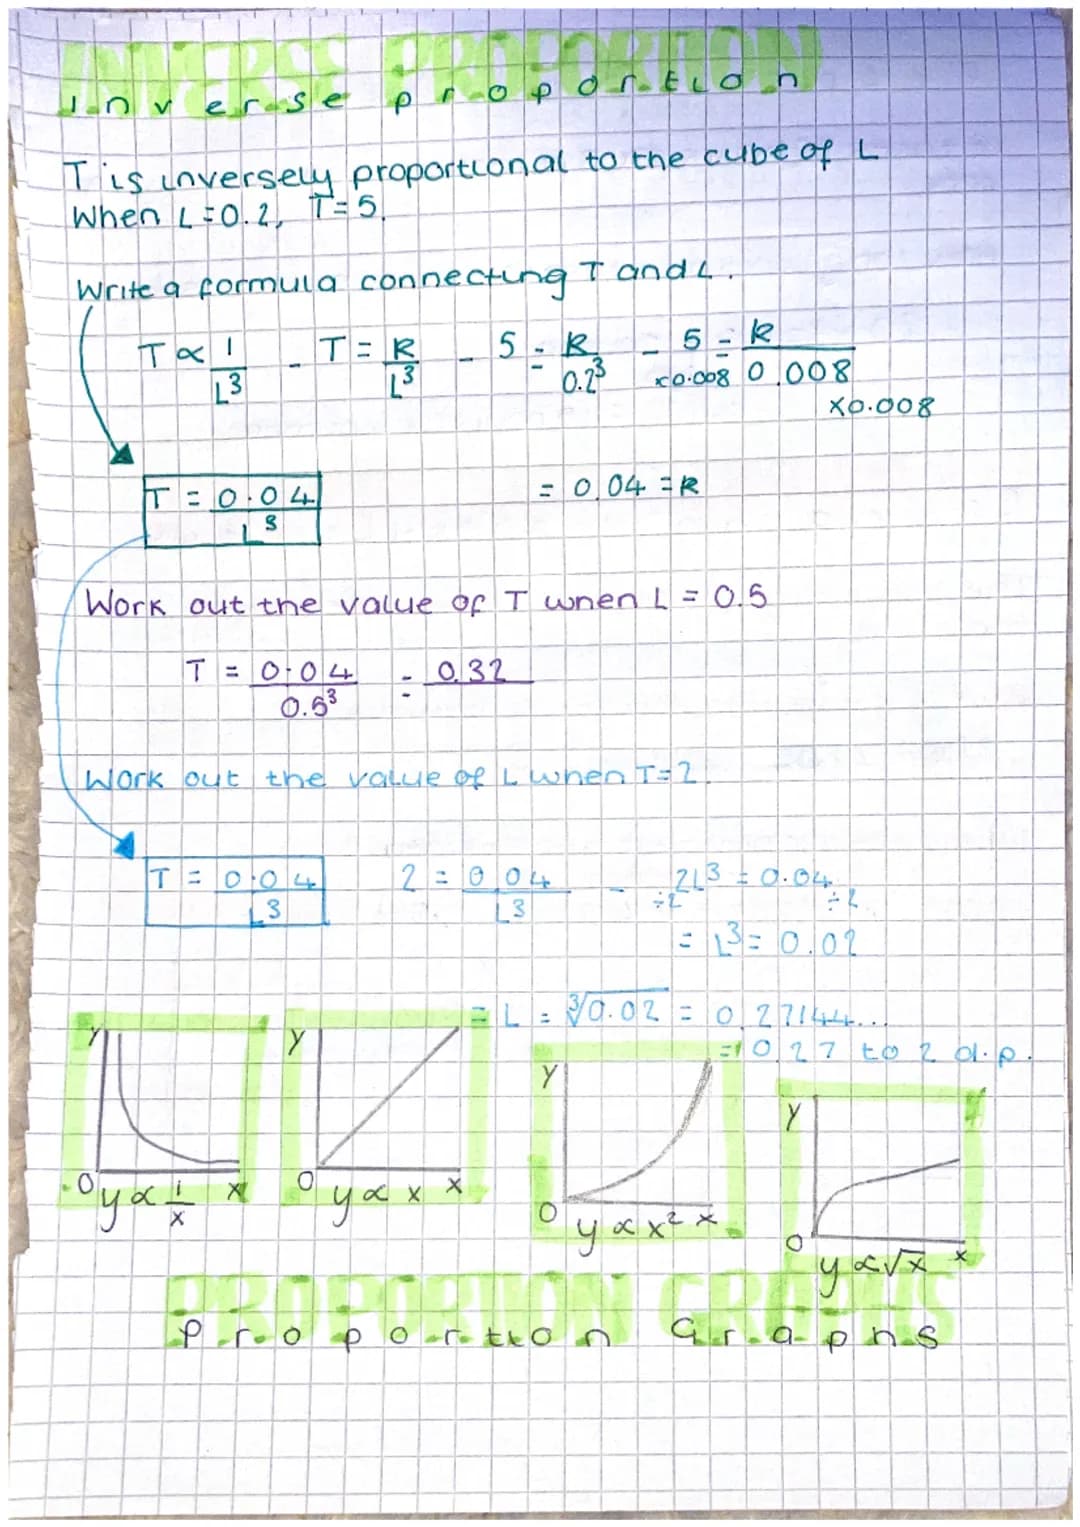 INVERSE PROPORTION
inverse proportion
T is inversely proportional to the cube of L
When L=0.2, T=5.
Write a formula connecting T and L.
T ∝ 1/L³ - T = k/L³ - 5 = k/0.2³ - 5 = k/0.008
×0.008 ×0.008
T = 0.04/L³ = 0.04 = k
Work out the value of T when L = 0.5
T = 0.04/0.5³ = 0.32
Work out the value of L when T=2.
T = 0.04/L³ 2 = 0.04/L³ - 2L³ = 0.04
÷2 ÷2
= L³ = 0.02
= L = ∛0.02 = 0.27144...
= 0.27 to 2 d.p.
y 0 x y ∝ 1/x
y 0 x y ∝ x
y 0 x y ∝ x²
y 0 x y ∝ √x
PROPORTION GRAPHS
Proportion Graphs